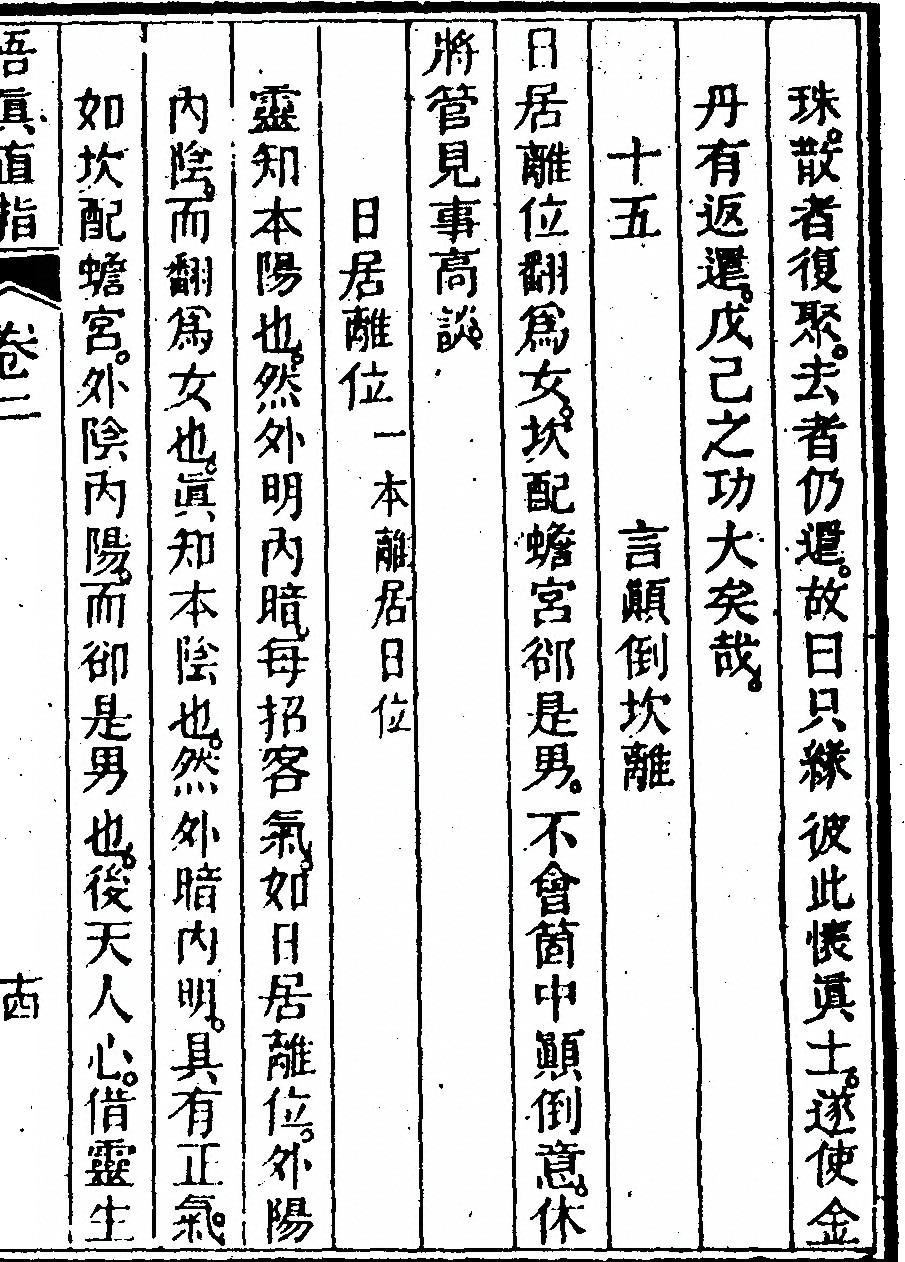 珠。散者復聚。去者仍還。故曰只緣彼此懷眞土。遂使金
丹有返還。戊己之功大矣哉。
十五　言顚倒坎離
日居離位翻爲女。坎配蟾宮郤是男。不會箇中顚倒意。休
將管見事高談。
日居離位 一本離居日位
靈知本陽也。然外明內暗。每招客氣。如日居離位。外陽
內陰。而翻爲女也。眞知本陰也。然外暗內明。具有正氣。
如坎配蟾宮。外陰內陽。而郤是男也。後天人心。借靈生
悟眞直指　卷二